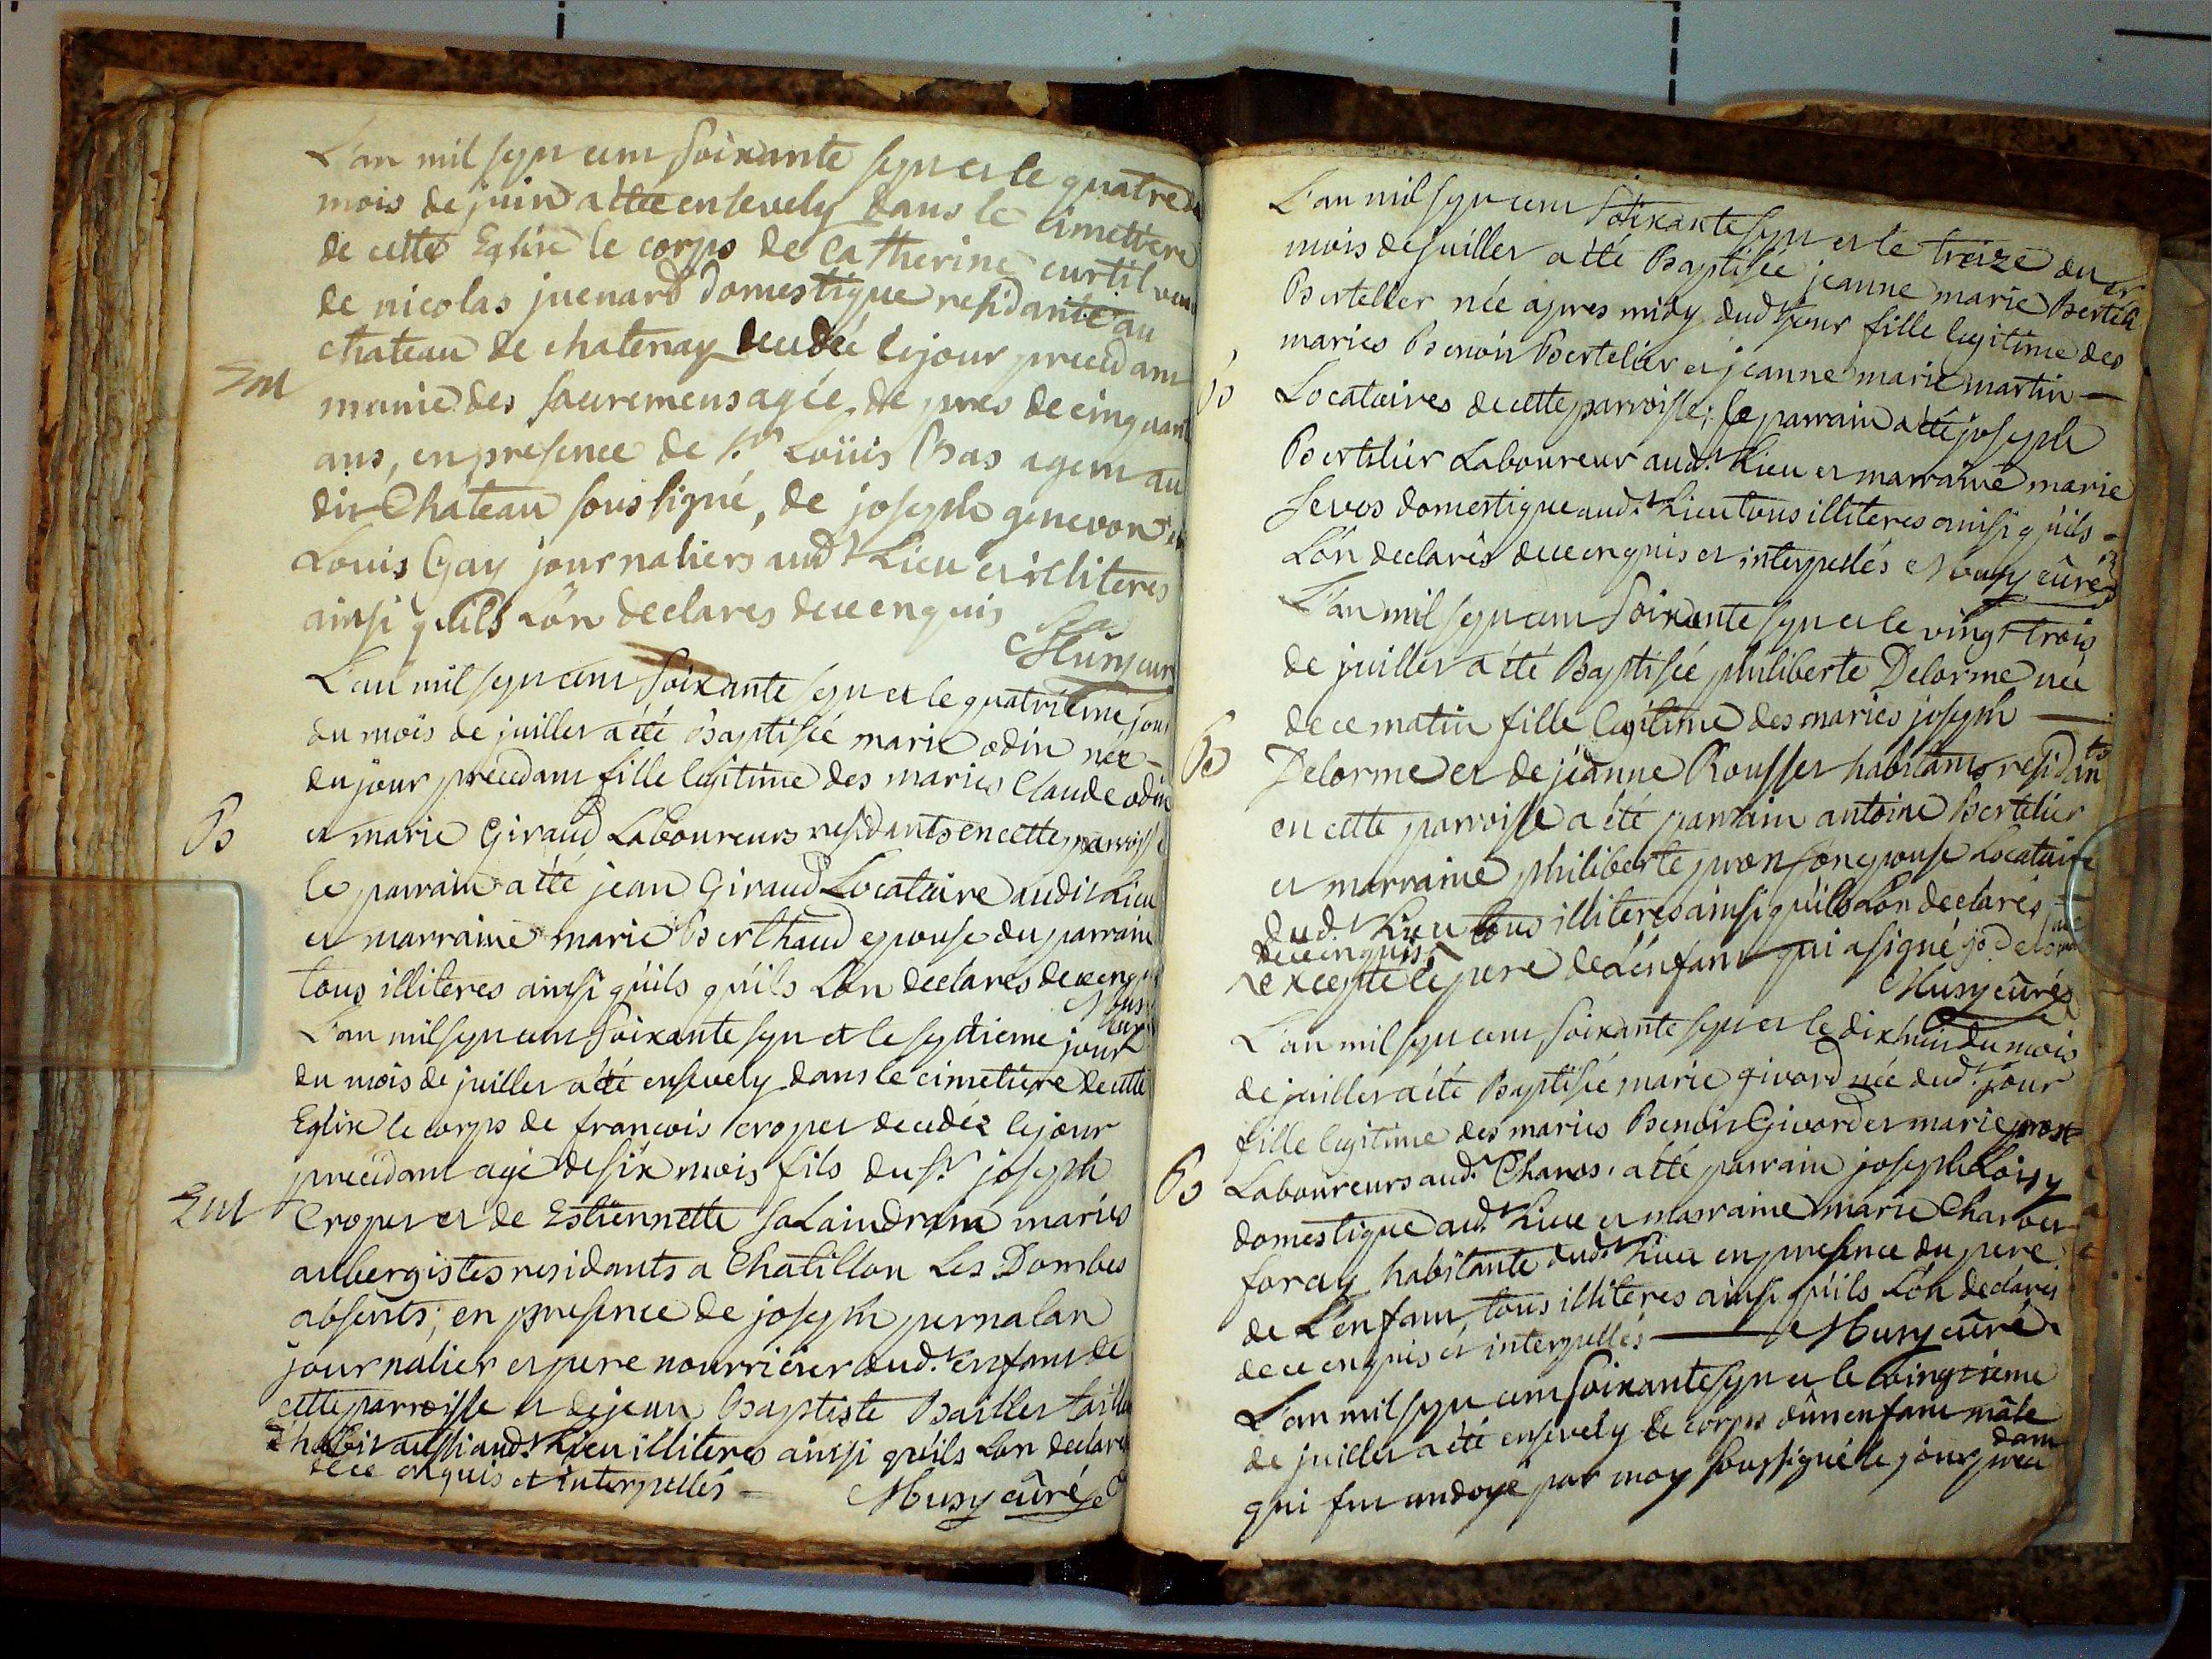 L'an mil sept cent soixante sept et le quatre du
mois de juin a été ensevely dans le cimettiere
de cette Eglise le corps de Catherine curtil veuve
de nicolas juenard domestique residante au
chateau de chatenay decedée le jour precedant
Em
munie des sacremens agée de pres de cinquante
ans, en presence de sr. Loüis Bas agent au
dit Château soussigné, de joseph genevon et
Louis Gay journaliers audt Lieu et illiteres
ainsi qu'ils L'on declares de ce enquis Bas
Musy curé
L'an mil sept cent soixante sept et le quatriéme jour
du mois de juillet a été Baptisée marie odin née
du jour precedant fille legitime des mariés Claude odin
B
et marie Giraud Laboureurs residants en cette parroisse
le parrain a été jean Giraud Locataire audit Lieu
et marraine marie Berthaud epouse du parrain
tous illiteres ainsi qu'ils qu'ils L'on declares de ce enquis
Musy curé
L'an mil sept cent soixante sept et le septieme jour
du mois de juillet a été ensevely dans le cimetiere de cette
Eglise le corps de francois cropet decedéz le jour
precedant agé de six mois fils du sr. joseph
Em
Cropet et de Estiennette salaindrin mariés
aubergistes residants a Chatillon Les Dombes
absents; en presence de joseph pernalan
journalier et pere nourricier dud. enfant de
cette parroisse et de jean Baptiste Baillet tailleur
d'habit aussi audt Lieu illiteres ainsi qu'ils L'on declares
de ce enquis et interpellés Musy cûré
L'an mil sept cent soixante sept et le treize du
mois de juillet a été Baptisée jeanne marie
Bertelier née apres midy dudt jour fille legitime des
mariés Benoit Bertelier et jeanne marie martin
B
Locataires de cette parroisse; le parrain a été joseph
Bertelier Laboureur audt. Lieu et marraine marie
Seves domestique aud. Lieu tous illiteres ainsi qu'ils
L'on declarés de ce enquis et interpellés Musy cûré
L'an mil sept cent soixante sept et le vingt trois
de juillet a été Baptisée philiberte Delorme née
de ce matin fille legitime des mariés joseph
B
Delorme et de jeanne Rousset habitants residants
en cette parroisse a été parrain antoine Bertelier
et marraine philiberte pron son epouse Locataire
dud. Lieu tous illiteres ainsi qu'ils L'on declarés
de ce enquis,
excepté le pere de L'enfant qui a signé jo. delorme
Musy cûré
L'an mil sept cent soixante sept et le dix huit du mois
de juillet a été Baptisée marie givord née dud. jour
fille legitime des mariés Benoit Givord et marie prost
B
Laboureurs aud. Chanos. a été parrain joseph Loisy
domestique aud. Lieu et marraine marie Charvet
foray habitante dudt Lieu en presence du pere
de L'enfant, tous illiteres ainsi qu'ils L'on declarés
de ce enquis et interpellés Musy cûré
L'an mil sept cent soixante sept et le vingtieme
de juillet a été ensevely le corps d'un enfant mâle
qui fut ondoyé par moy soussigné le jour precedant